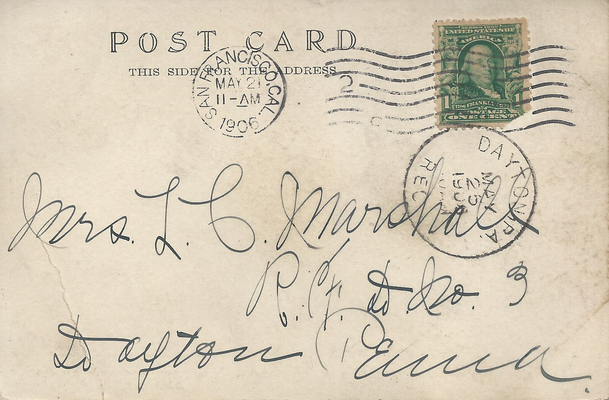 POST CARD
THIS SIDE FOR THE ADDRESS
SAN FRANCISCO, CAL.
MAY 21
11-AM
1906
2
SERIES 1902
UNITED STATES OF
AMERICA
1 1
POSTAGE
ONE CENT
DAYTON, PA.
MAY
25
REC'D
Mrs. L. C. Marshall
R. F. D. No. 3
Dayton Penna.